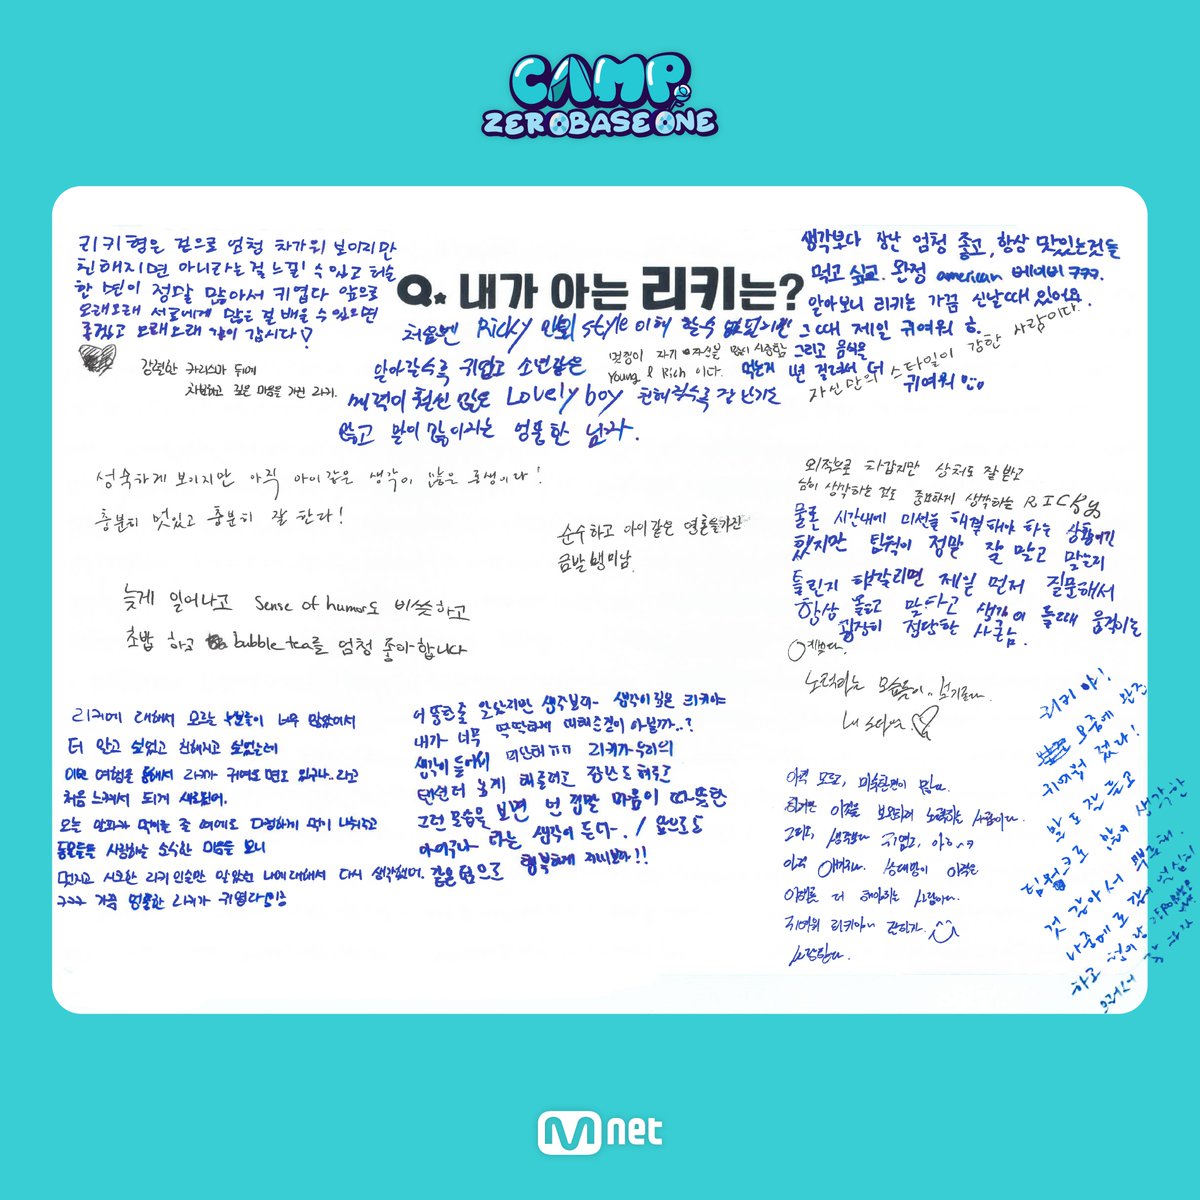 CAMP
ZEROBASEONE
Q. 내가 아는 리키는?
리키형은 겉으로 엄청 차가워 보이지만
친해지면 아니라는 걸 느낄 수 있고 허술
한 면이 정말 많아서 귀엽다 앞으로
오래오래 서로에게 많은 걸 배울 수 있으면
좋겠고 오래오래 같이 갑시다!
강렬한 카리스마 뒤에
차분하고 깊은 마음을 가진 리키.
처음엔 Ricky 만의 style 이해 할수 없었지만
알아갈수록 귀엽고 소년같은
매력이 훨씬 많은 Lovely boy 친해질수록 장난기도
많고 말이 많아지는 엉뚱한 남자.
멋쟁이 자기 자신을 많이 사랑함
Young & Rich 이다.
생각보다 장난 엄청 좋고, 항상 맛있는것들
먹고 싶고. 완전 american 베이비 ㅋㅋㅋ.
알아보니 리키는 가끔 신날때 있어요.
그때 제일 귀여워 ㅎ.
그리고 음식을
먹는지 1년 걸려서 더
귀여워
자신만의 스타일이 강한 사람이다.
성숙하게 보이지만 아직 아이같은 생각이 많은 동생이다!
충분히 멋있고 충분히 잘 한다!
순수하고 아이같은 영혼을가진
금발 병미남.
외적으로 차갑지만 상처도 잘 받고
남이 생각하는 것도 중요하게 생각하는 RICKY
물론 시간내에 미션을 해결해야 하는 상황이긴
했지만 팀워크이 정말 잘 맞고 맞는지
틀린지 햇갈리면 제일 먼저 질문해서
항상 옳고 맞다고 생각이 들때 움직이는
굉장히 적당한 사람.
늦게 일어나고 Sense of humor도 비슷하고
초밥 하고 bubble tea를 엄청 좋아합니다
예쁘다.
노력하는 모습이.. 보기좋다.
리키에 대해서 모르는 부분들이 너무 많았어서
더 알고 싶었고 친해지고 싶었는데
이번 여행을 통해서 리키가 귀여운 면도 있구나..라고
처음 느껴서 되게 새로웠어.
오늘 양파가 먹기는 줄 에게도 다정하게 먹이 나눠주고
동물들을 사랑하는 소중한 마음을 보니
멋지고 시크한 리키 인줄만 알았던 나에 대해서 다시 생각했어.
ㅋㅋㅋ 가끔 엉뚱한 리키가 귀엽다
더 똑똑을 알았지만 생각보다 생각이 깊은 리키야
내가 너무 딱딱하게 대해준것이 아닐까..?
생각이 들어서 미안해ㅠㅠ 리키가 우리의
텐션더 높게 해줄려고 장난도 쳐주고
그런 모습을 보면 넌 정말 마음이 따뜻한
아이구나 라는 생각이 든다. / 앞으로도
같은 팀으로 행복하게 지내보자!!
아직 모르고, 미숙한면이 많다.
하지만 이것을 보완하려 노력하는 사람이다.
그리고, 생각보다 귀엽고,
이것을 더 해야하는 사람이다.
귀여워 리키아
사랑한다.
리키야!
요즘에 완전
귀여워 졌다!
말도 잘 듣고
팀원으로 많이 생각한
것 같아서 뿌듯해.
나중에도 함께 열심히
하고
mnet